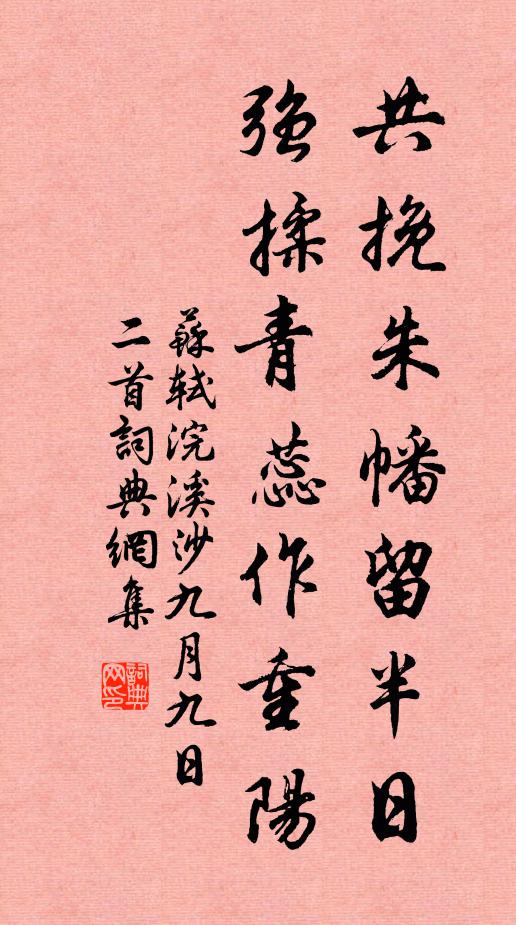 共挽朱幡留半日
強揉青蕊作重陽
蘇軾浣溪沙九月九日
二首詞典網集
詞典網印